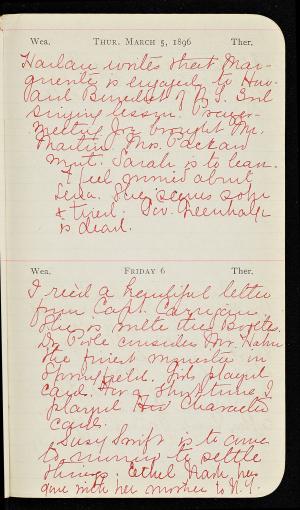 Wea. Thur. March 5, 1896 Ther.
Harlan writes that Mar-
guerite is engaged to How-
ard of N. Y. 3rd
singing lesson. Prayer-
meeting Joe brought Mr.
Martin. Mrs. Packard
Sarah is to leave.
I feel worried about
Lena. She seems sober
& tired. Gov. Greenhalge
is dead.
Wea. Friday 6 Ther.
I rec'd a beautiful letter
from Capt.
She is with the
Dr. Pole considers Mr. Hahn
the finest minister in
Springfield. Girls played
cards. For a short time I
played Hist Characters
cards.
Susy Swift is to come
to morrow to settle
things. Ethel has
gone with her mother to N. Y.